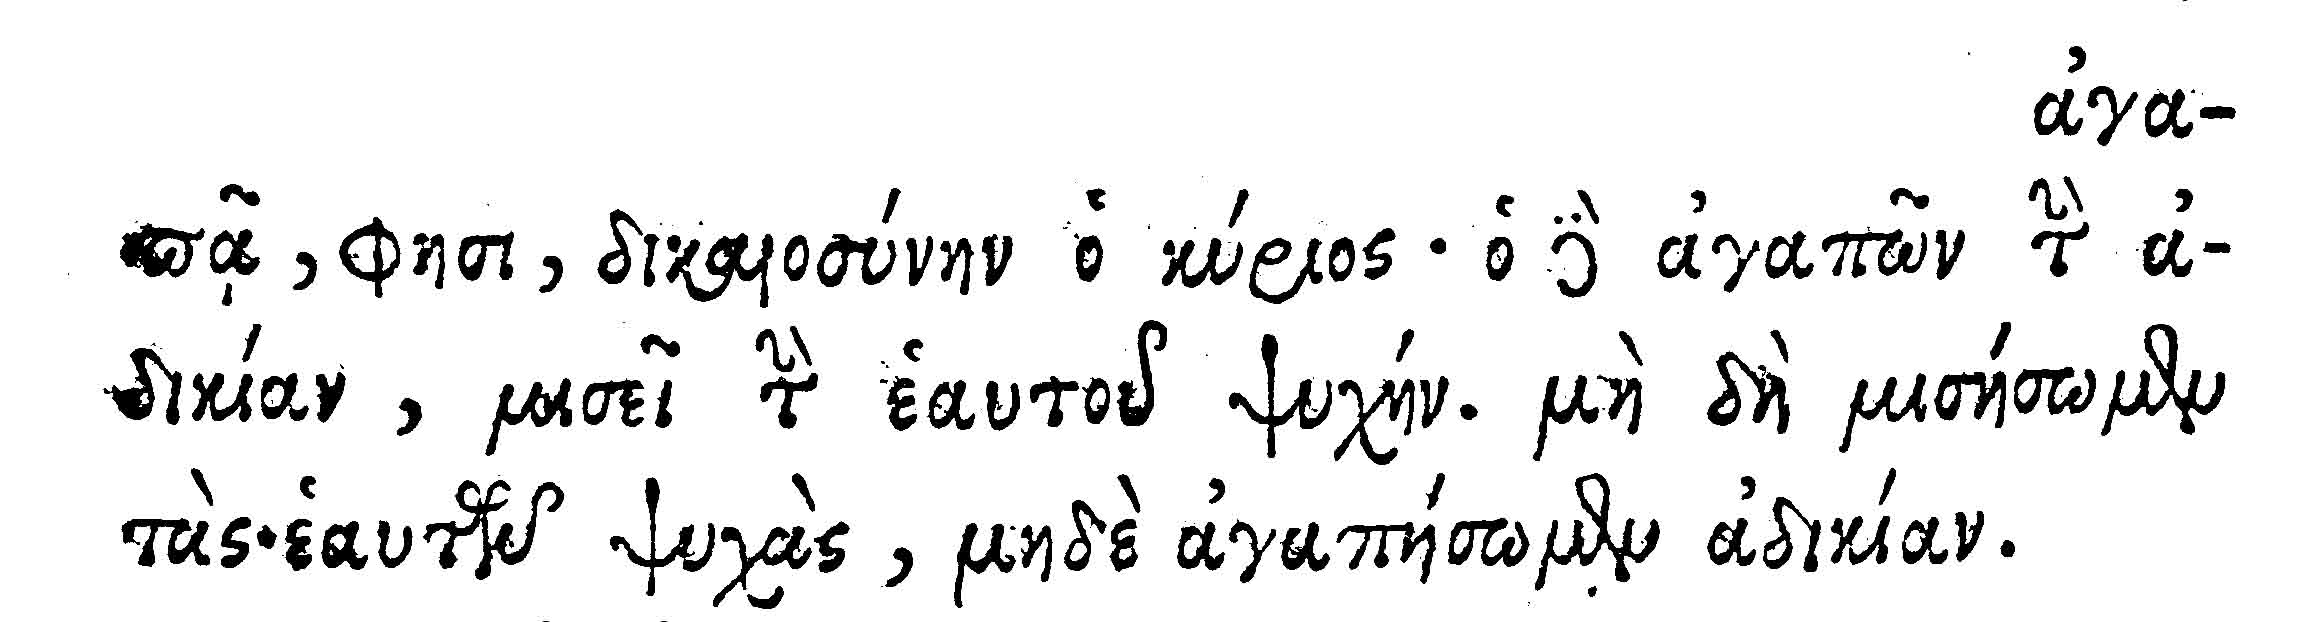 ἀγα-
πᾷ, φησι, δικαιοσύνην ὁ κύριος· ὁ δὲ ἀγαπῶν τὴν ἀ-
δικίαν, μισεῖ τὴν ἑαυτοῦ ψυχήν. μὴ δὴ μισήσωμεν
τὰς ἑαυτῶν ψυχὰς, μηδὲ ἀγαπήσωμεν ἀδικίαν.